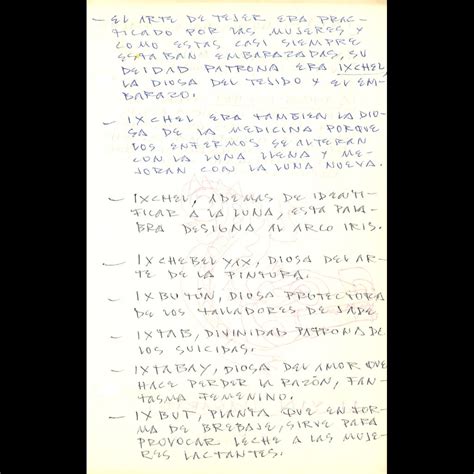 — EL ARTE DE TEJER ERA PRAC-
TICADO POR LAS MUJERES Y
COMO ESTAS CASI SIEMPRE
ESTABAN EMBARAZADAS, SU
DEIDAD PATRONA ERA IXCHEL,
LA DIOSA DEL TEJIDO Y EL EM-
BARAZO.
— IXCHEL ERA TAMBIEN LA DIO-
SA DE LA MEDICINA PORQUE
LOS ENFERMOS SE ALTERAN
CON LA LUNA LLENA Y ME-
JORAN CON LA LUNA NUEVA.
— IXCHEL, ADEMAS DE IDENTI-
FICAR A LA LUNA, ESTA PALA-
BRA DESIGNA AL ARCO IRIS.
— IXCHEBELYAX, DIOSA DEL AR-
TE DE LA PINTURA.
— IXBUYÚN, DIOSA PROTECTORA
DE LOS TALLADORES DE JADE.
— IXTAB, DIVINIDAD PATRONA DE
LOS SUICIDAS.
— IXTABAY, DIOSA DEL AMOR QUE
HACE PERDER LA RAZÓN, FAN-
TASMA FEMENINO.
— IXBUT, PLANTA QUE EN FOR-
MA DE BREBAJE, SIRVE PARA
PROVOCAR LECHE A LAS MUJE-
RES LACTANTES.